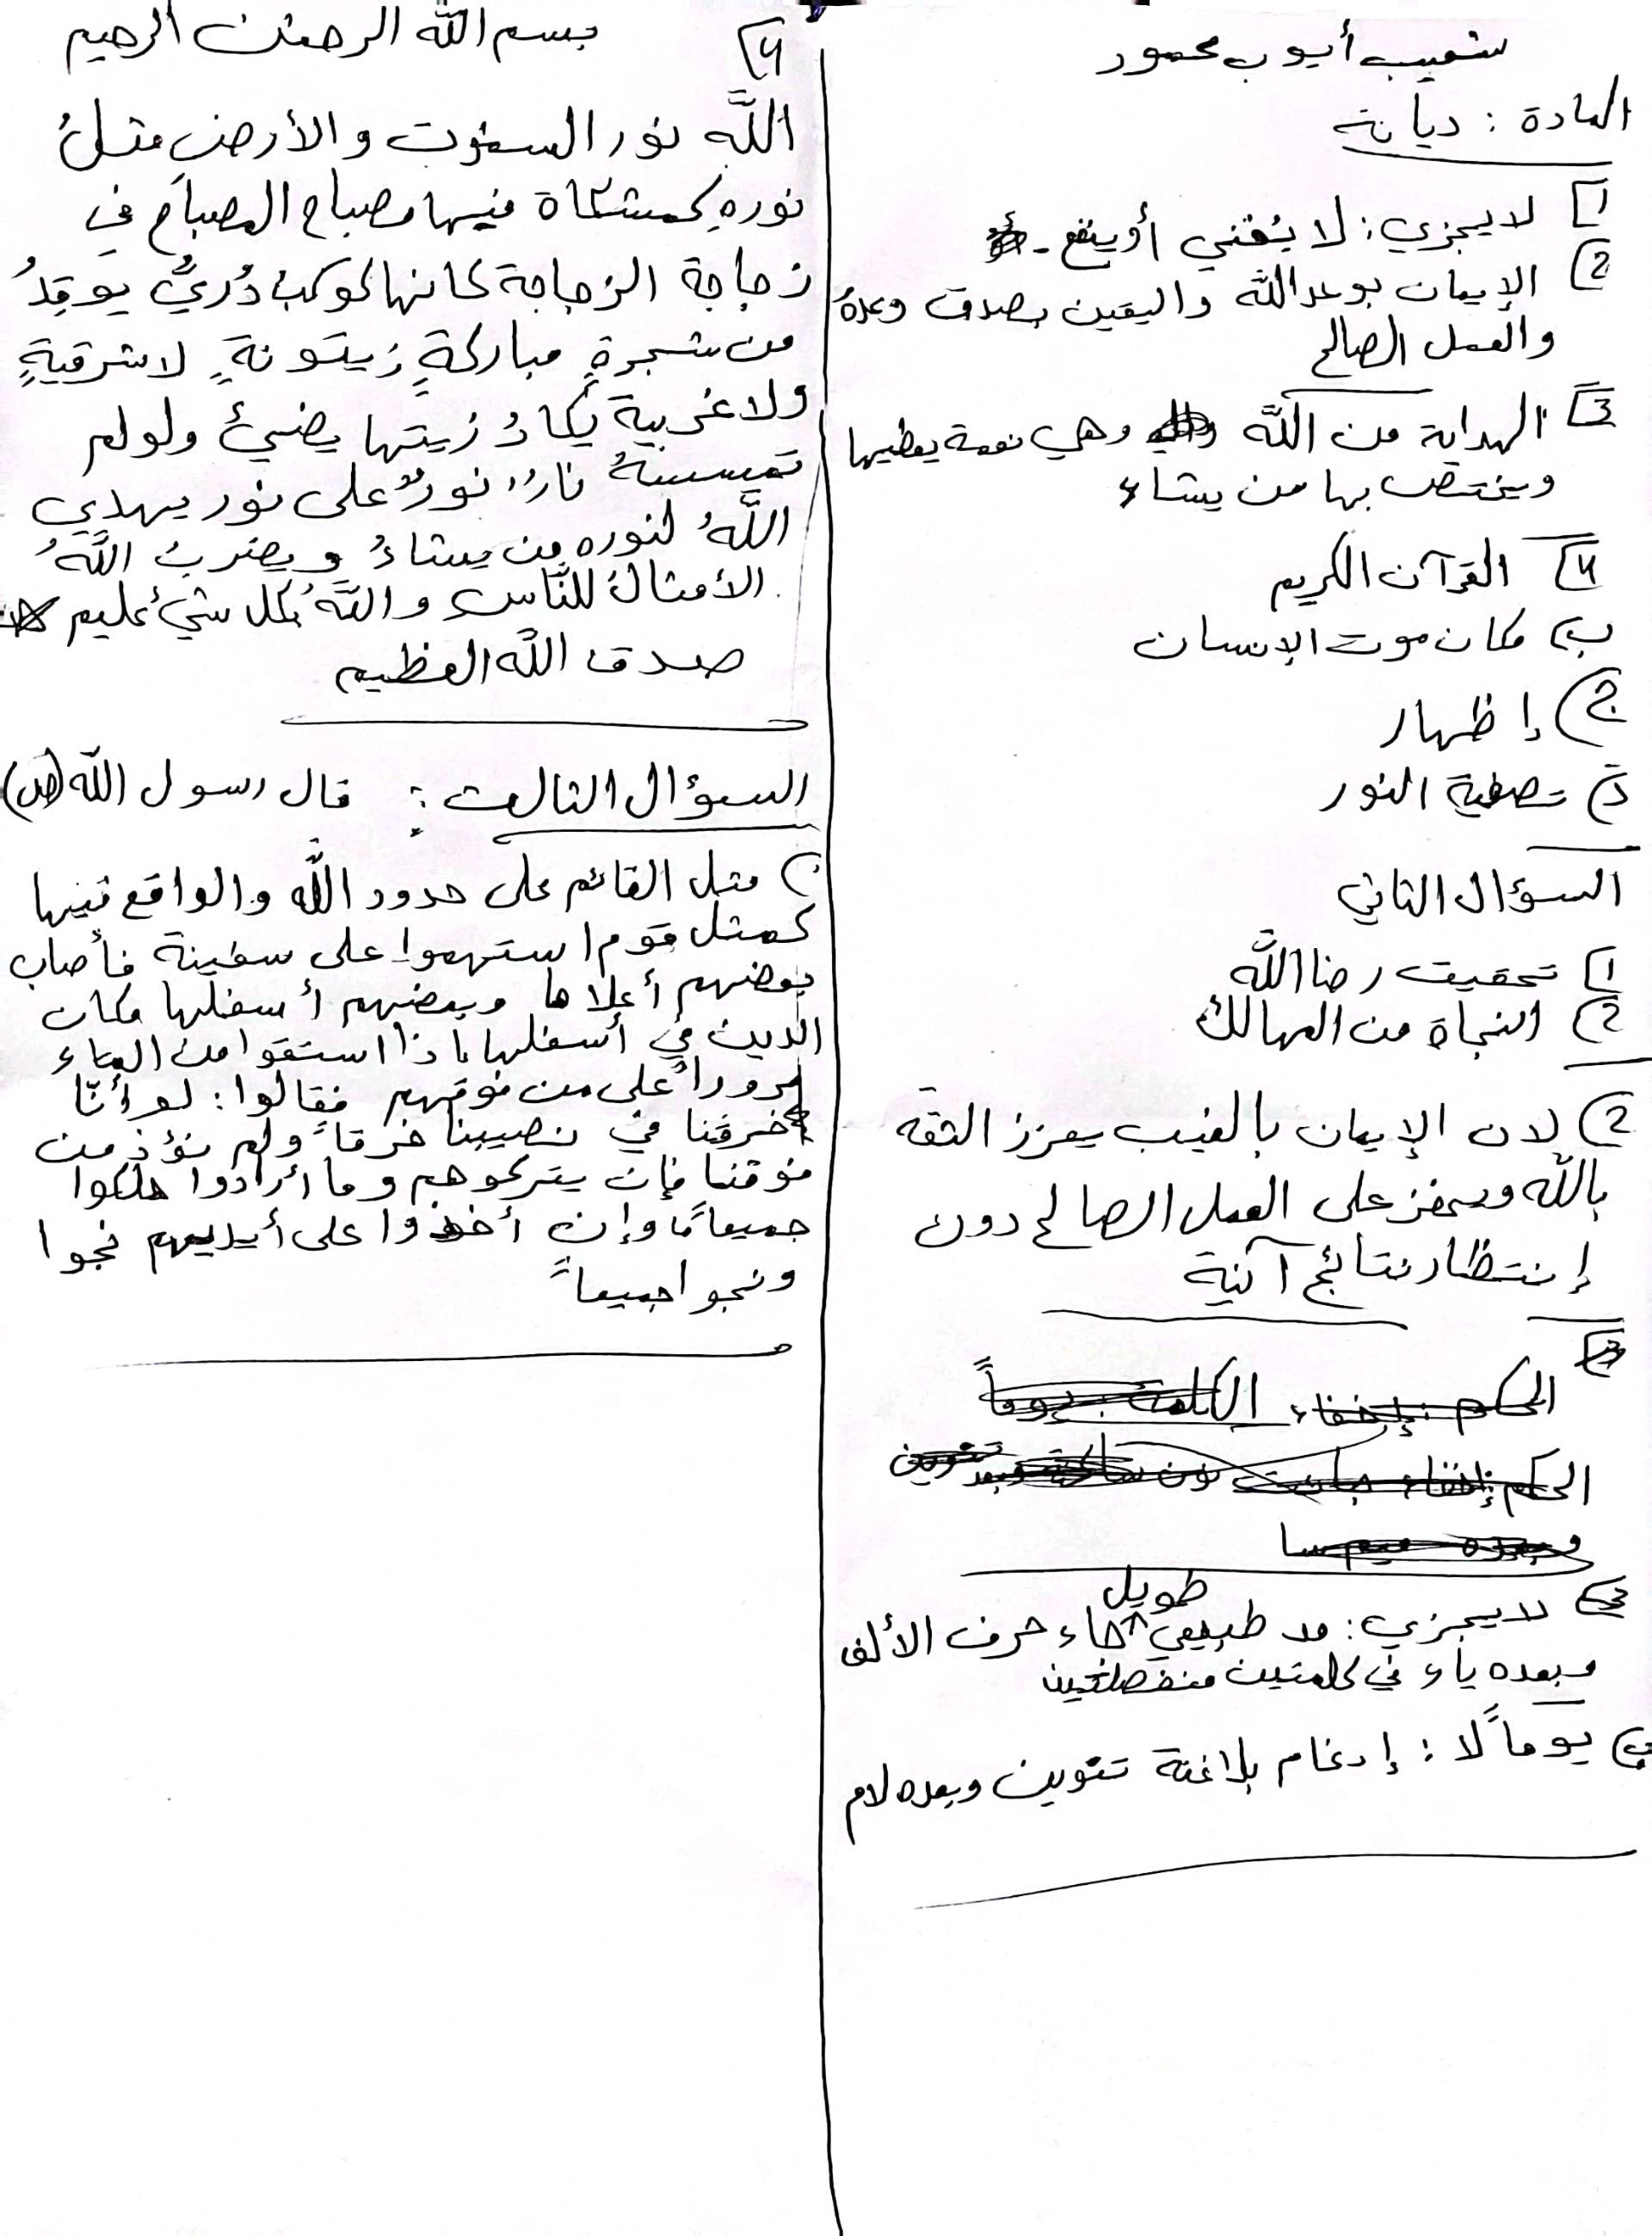 شعيب أيوب محمود
المادة : ديانة
1] لا يجزي : لا يُغني أو ينفع .
2) الإيمان بوعد الله واليقين بصدق وعدهُ
والعمل الصالح
3] الهداية من اللَّه وهي نعمة يعطيها
ويختص بها من يشاء
4] القرآن الكريم
ب) مكان موت الإنسان
ج) إظهار
د) تصفية النور
السؤال الثاني
1] تحقيق رضا اللَّه
2) النجاة من المهالك
2) لان الإيمان بالغيب يعزز الثقة
باللَّه ويحفز على العمل الصالح دون
إنتظار نتائج آنية
3]
الحكم إخفاء الكلمة يوماً
الحكم إخفاء جائت نون ساكنة وبعد تنوين
وبعده ميم سا
3) لا يجزي : مد طبيعي طويل جاء حرف الألف
وبعده ياء في كلمتين منفصلتين
ب) يوماً لا : إدغام بلا غنة تنوين وبعده لام
4] بسم اللَّه الرحمٰن الرحيم
اللَّه نور السمٰوٰت والأرضِ مثلُ
نورهِ كمشكاة فيها مصباح المصباح في
زجاجة الزجاجة كانها كوكبٌ دُريٌّ يوقِدُ
من شجرةٍ مباركةٍ زيتونةٍ لا شرقيةٍ
ولا غربية يكادُ زيتها يضيئُ ولو لم
تمسسهُ نارٌ نورٌ على نور يهدي
اللَّهُ لنوره من يشاءُ ويضربُ اللَّهُ
الأمثالَ للنَّاس واللَّهُ بكل شيءٍ عليم
صدق اللَّه العظيم
السؤال الثالث : قال رسول اللَّه (ص)
) مثل القائم على حدود اللَّه والواقع فيها
كمثل قوم استهموا على سفينة فأصاب
بعضهم أعلاها وبعضهم أسفلها فكان
الذين في أسفلها اذا استقوا من الماء
مروراً على من فوقهم فقالوا : لو أنّا
خرقنا في نصيبنا خرقاً ولم نؤذ من
فوقنا فإن يتركوهم وما أرادوا هلكوا
جميعاً وإن أخذوا على أيديهم نجوا
ونجوا جميعاً